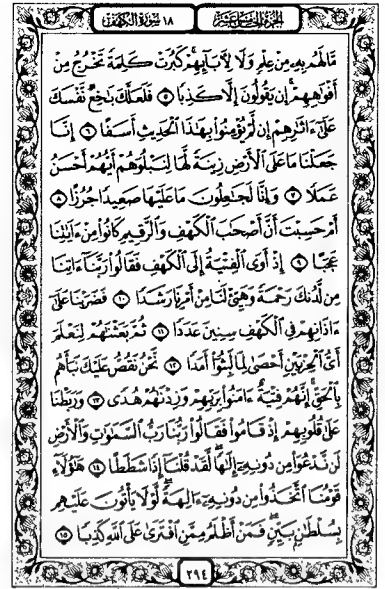 الجزء الخامس عشر
١٨ سورة الكهف
مَّا لَهُم بِهِۦ مِنْ عِلْمٍ وَلَا لِأَبَآئِهِمْ كَبُرَتْ كَلِمَةً تَخْرُجُ مِنْ
أَفْوَٰهِهِمْ إِن يَقُولُونَ إِلَّا كَذِبًا ٥ فَلَعَلَّكَ بَٰخِعٌ نَّفْسَكَ
عَلَىٰٓ ءَاثَٰرِهِمْ إِن لَّمْ يُؤْمِنُوا۟ بِهَٰذَا ٱلْحَدِيثِ أَسَفًا ٦ إِنَّا
جَعَلْنَا مَا عَلَى ٱلْأَرْضِ زِينَةً لَّهَا لِنَبْلُوَهُمْ أَيُّهُمْ أَحْسَنُ
عَمَلًا ٧ وَإِنَّا لَجَٰعِلُونَ مَا عَلَيْهَا صَعِيدًا جُرُزًا ٨
أَمْ حَسِبْتَ أَنَّ أَصْحَٰبَ ٱلْكَهْفِ وَٱلرَّقِيمِ كَانُوا۟ مِنْ ءَايَٰتِنَا
عَجَبًا ٩ إِذْ أَوَى ٱلْفِتْيَةُ إِلَى ٱلْكَهْفِ فَقَالُوا۟ رَبَّنَآ ءَاتِنَا
مِن لَّدُنكَ رَحْمَةً وَهَيِّئْ لَنَا مِنْ أَمْرِنَا رَشَدًا ١٠ فَضَرَبْنَا عَلَىٰٓ
ءَاذَانِهِمْ فِى ٱلْكَهْفِ سِنِينَ عَدَدًا ١١ ثُمَّ بَعَثْنَٰهُمْ لِنَعْلَمَ
أَىُّ ٱلْحِزْبَيْنِ أَحْصَىٰ لِمَا لَبِثُوٓا۟ أَمَدًا ١٢ نَّحْنُ نَقُصُّ عَلَيْكَ نَبَأَهُم
بِٱلْحَقِّ إِنَّهُمْ فِتْيَةٌ ءَامَنُوا۟ بِرَبِّهِمْ وَزِدْنَٰهُمْ هُدًى ١٣ وَرَبَطْنَا
عَلَىٰ قُلُوبِهِمْ إِذْ قَامُوا۟ فَقَالُوا۟ رَبُّنَا رَبُّ ٱلسَّمَٰوَٰتِ وَٱلْأَرْضِ
لَن نَّدْعُوَا۟ مِن دُونِهِۦٓ إِلَٰهًا لَّقَدْ قُلْنَآ إِذًا شَطَطًا ١٤ هَٰٓؤُلَآءِ
قَوْمُنَا ٱتَّخَذُوا۟ مِن دُونِهِۦٓ ءَالِهَةً لَّوْلَا يَأْتُونَ عَلَيْهِم
بِسُلْطَٰنٍۭ بَيِّنٍ فَمَنْ أَظْلَمُ مِمَّنِ ٱفْتَرَىٰ عَلَى ٱللَّهِ كَذِبًا ١٥
٢٩٤